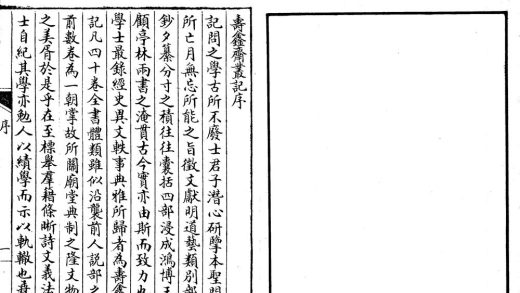 壽鑫齋叢記序
記問之學古所不廢士君子潛心研孳本聖門
所亡月無忘所能之旨徵文獻明道藝類別部
鈔夕纂分寸之積往往囊括四部浸成鴻博王
顧亭林兩書之淹貫古今實亦由斯而致力也
學士最錄經史異文軼事典雅所歸者為壽鑫
記凡四十卷全書體類雖似沿襲前人說部之
前數卷為一朝掌故所關廟堂典制之隆文物
之美胥於是乎在至標舉羣籍條晰詩文義法
士自紀其學亦勉人以績學而示以軌轍也
序
一